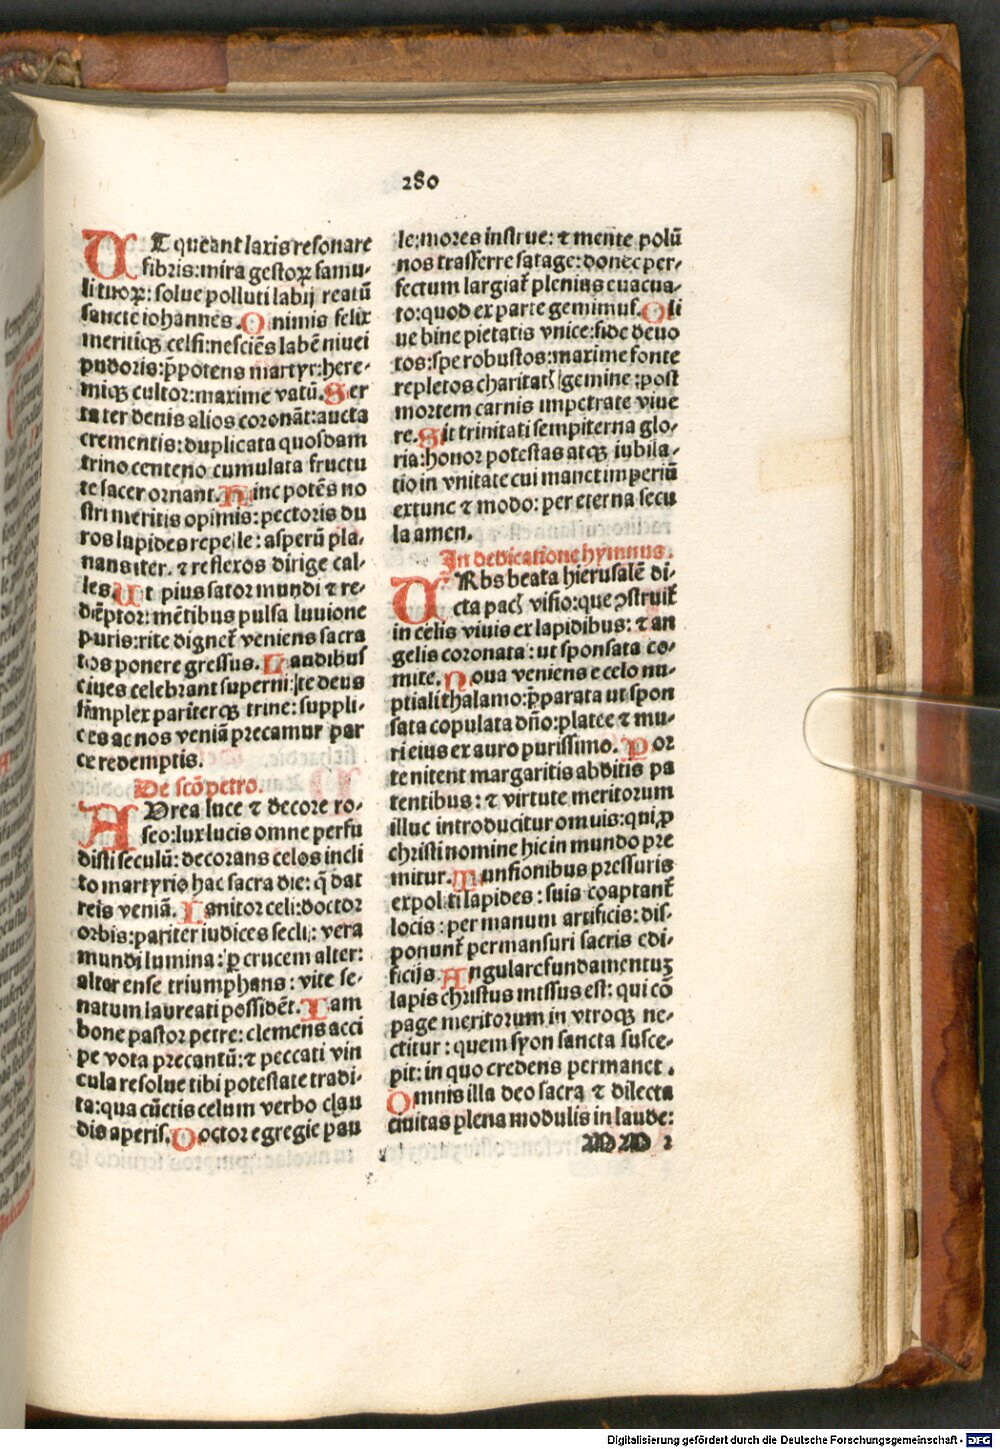 280
UT queant laxis resonare
fibris: mira gestoꝝ famu-
li tuoꝝ: solue polluti labij reatū
sancte iohannes. O nimis felix
meritiqꝫ celsi: nesciēs labē niuei
pudoris: p̄potens martyr: here-
miqꝫ cultor: maxime vatū. Ser
ta ter denis alios coronāt: aucta
crementis: duplicata quosdam
trino centeno cumulata fructu
te sacer ornant. Hinc potēs no
stri meritis opimis: pectoris du
ros lapides repelle: asperū pla-
nans iter. ⁊ reflexos dirige cal-
les. Ut pius sator mundi ⁊ re-
dēptor: mētibus pulsa luuione
puris: rite dignet᷑ veniens sacra
tos ponere gressus. Laudibus
ciues celebrant superni: te deus
simplex pariterqꝫ trine: suppli-
ces ac nos veniā precamur par
ce redemptis.
De scō petro.
AUrea luce ⁊ decore ro-
seo: lux lucis omne perfu
disti seculū: decorans celos incli
to martyrio hac sacra die: q̄ dat
reis veniā. Ianitor celi: doctor
orbis: pariter iudices secli: vera
mundi lumina: ꝑ crucem alter:
alter ense triumphans: vite se-
natum laureati possidēt. Iam
bone pastor petre: clemens acci
pe vota precantū: ⁊ peccati vin
cula resolue tibi potestate tradi-
ta: qua cūctis celum verbo clau
dis aperis. Doctor egregie pau
le: mores instrue: ⁊ mente polū
nos trasferre satage: donec per-
fectum largiat᷑ plenius euacua-
to: quod ex parte gemimus. Oli
ue bine pietatis vnice: fide deuo
tos: spe robustos: maxime fonte
repletos charitatꝭ gemine: post
mortem carnis impetrate viue
re. Sit trinitati sempiterna glo-
ria: honor potestas atqꝫ iubila-
tio in vnitate cui manet imperiū
extunc ⁊ modo: per eterna secu
la amen.
In dedicatione hymnus.
URbs beata hierusalē di-
cta pacꝭ visio: que ꝯstruit᷑
in celis viuis ex lapidibus: ⁊ an
gelis coronata: ut sponsata co-
mite. Noua veniens e celo nu-
ptiali thalamo: p̄parata ut spon
sata copulata dño: platee ⁊ mu-
ri eius ex auro purissimo. Por
te nitent margaritis abditis pa
tentibus: ⁊ virtute meritorum
illuc introducitur omuis: qui ꝓ
christi nomine hic in mundo pre
mitur. Tunsionibus pressuris
expoliti lapides: suis coaptant᷑
locis: per manum artificis: dis-
ponunt᷑ permansuri sacris edi-
ficijs. Angulare fundamentuꝫ
lapis christus missus est: qui cō
page meritorum in vtroqꝫ ne-
ctitur: quem syon sancta susce-
pit: in quo credens permanet.
Omnis illa deo sacra ⁊ dilecta
ciuitas plena modulis in laude:
MM 2
Digitalisierung gefördert durch die Deutsche Forschungsgemeinschaft - DFG